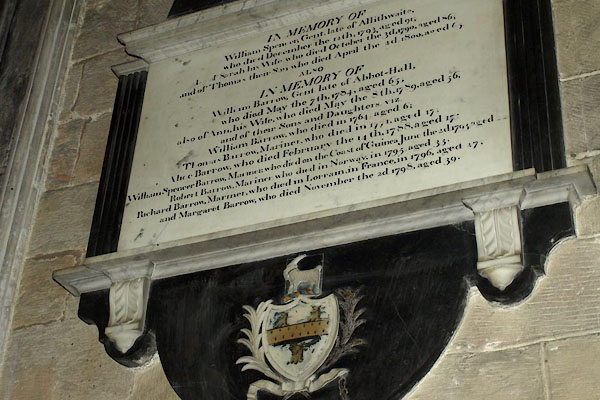 IN MEMORY OF
William Spencer, Gent. late of Allithwaite,
who died December the 12th, 1793, aged 91,
And Sarah his Wife who died October the 3d, 1790, aged 86,
and of Thomas their Son who died April the 2d 1800, aged
ALSO
IN MEMORY OF
William Barrow, Gent. late of Abbot-Hall,
who died May the 7th, 1784, aged 63,
also of Ann, his Wife, who died May the 8th, 1789, aged 56,
and of their Sons and Daughters, viz
William Barrow, who died in 1761, aged 6;
Thomas Barrow, Mariner, who died in 1774, aged 17;
Alice Barrow, who died February the 14th, 1788, aged 17;
William Spencer Barrow, Mariner who died on the Coast of Guinea, June the 2d, 1794, aged
Robert Barrow, Mariner who died in Norway, in 1795, aged 33.
Richard Barrow, Mariner, who died in Lorram, in France, in 1796, aged 27,
and Margaret Barrow, who died November the 2d 1798, aged 39.